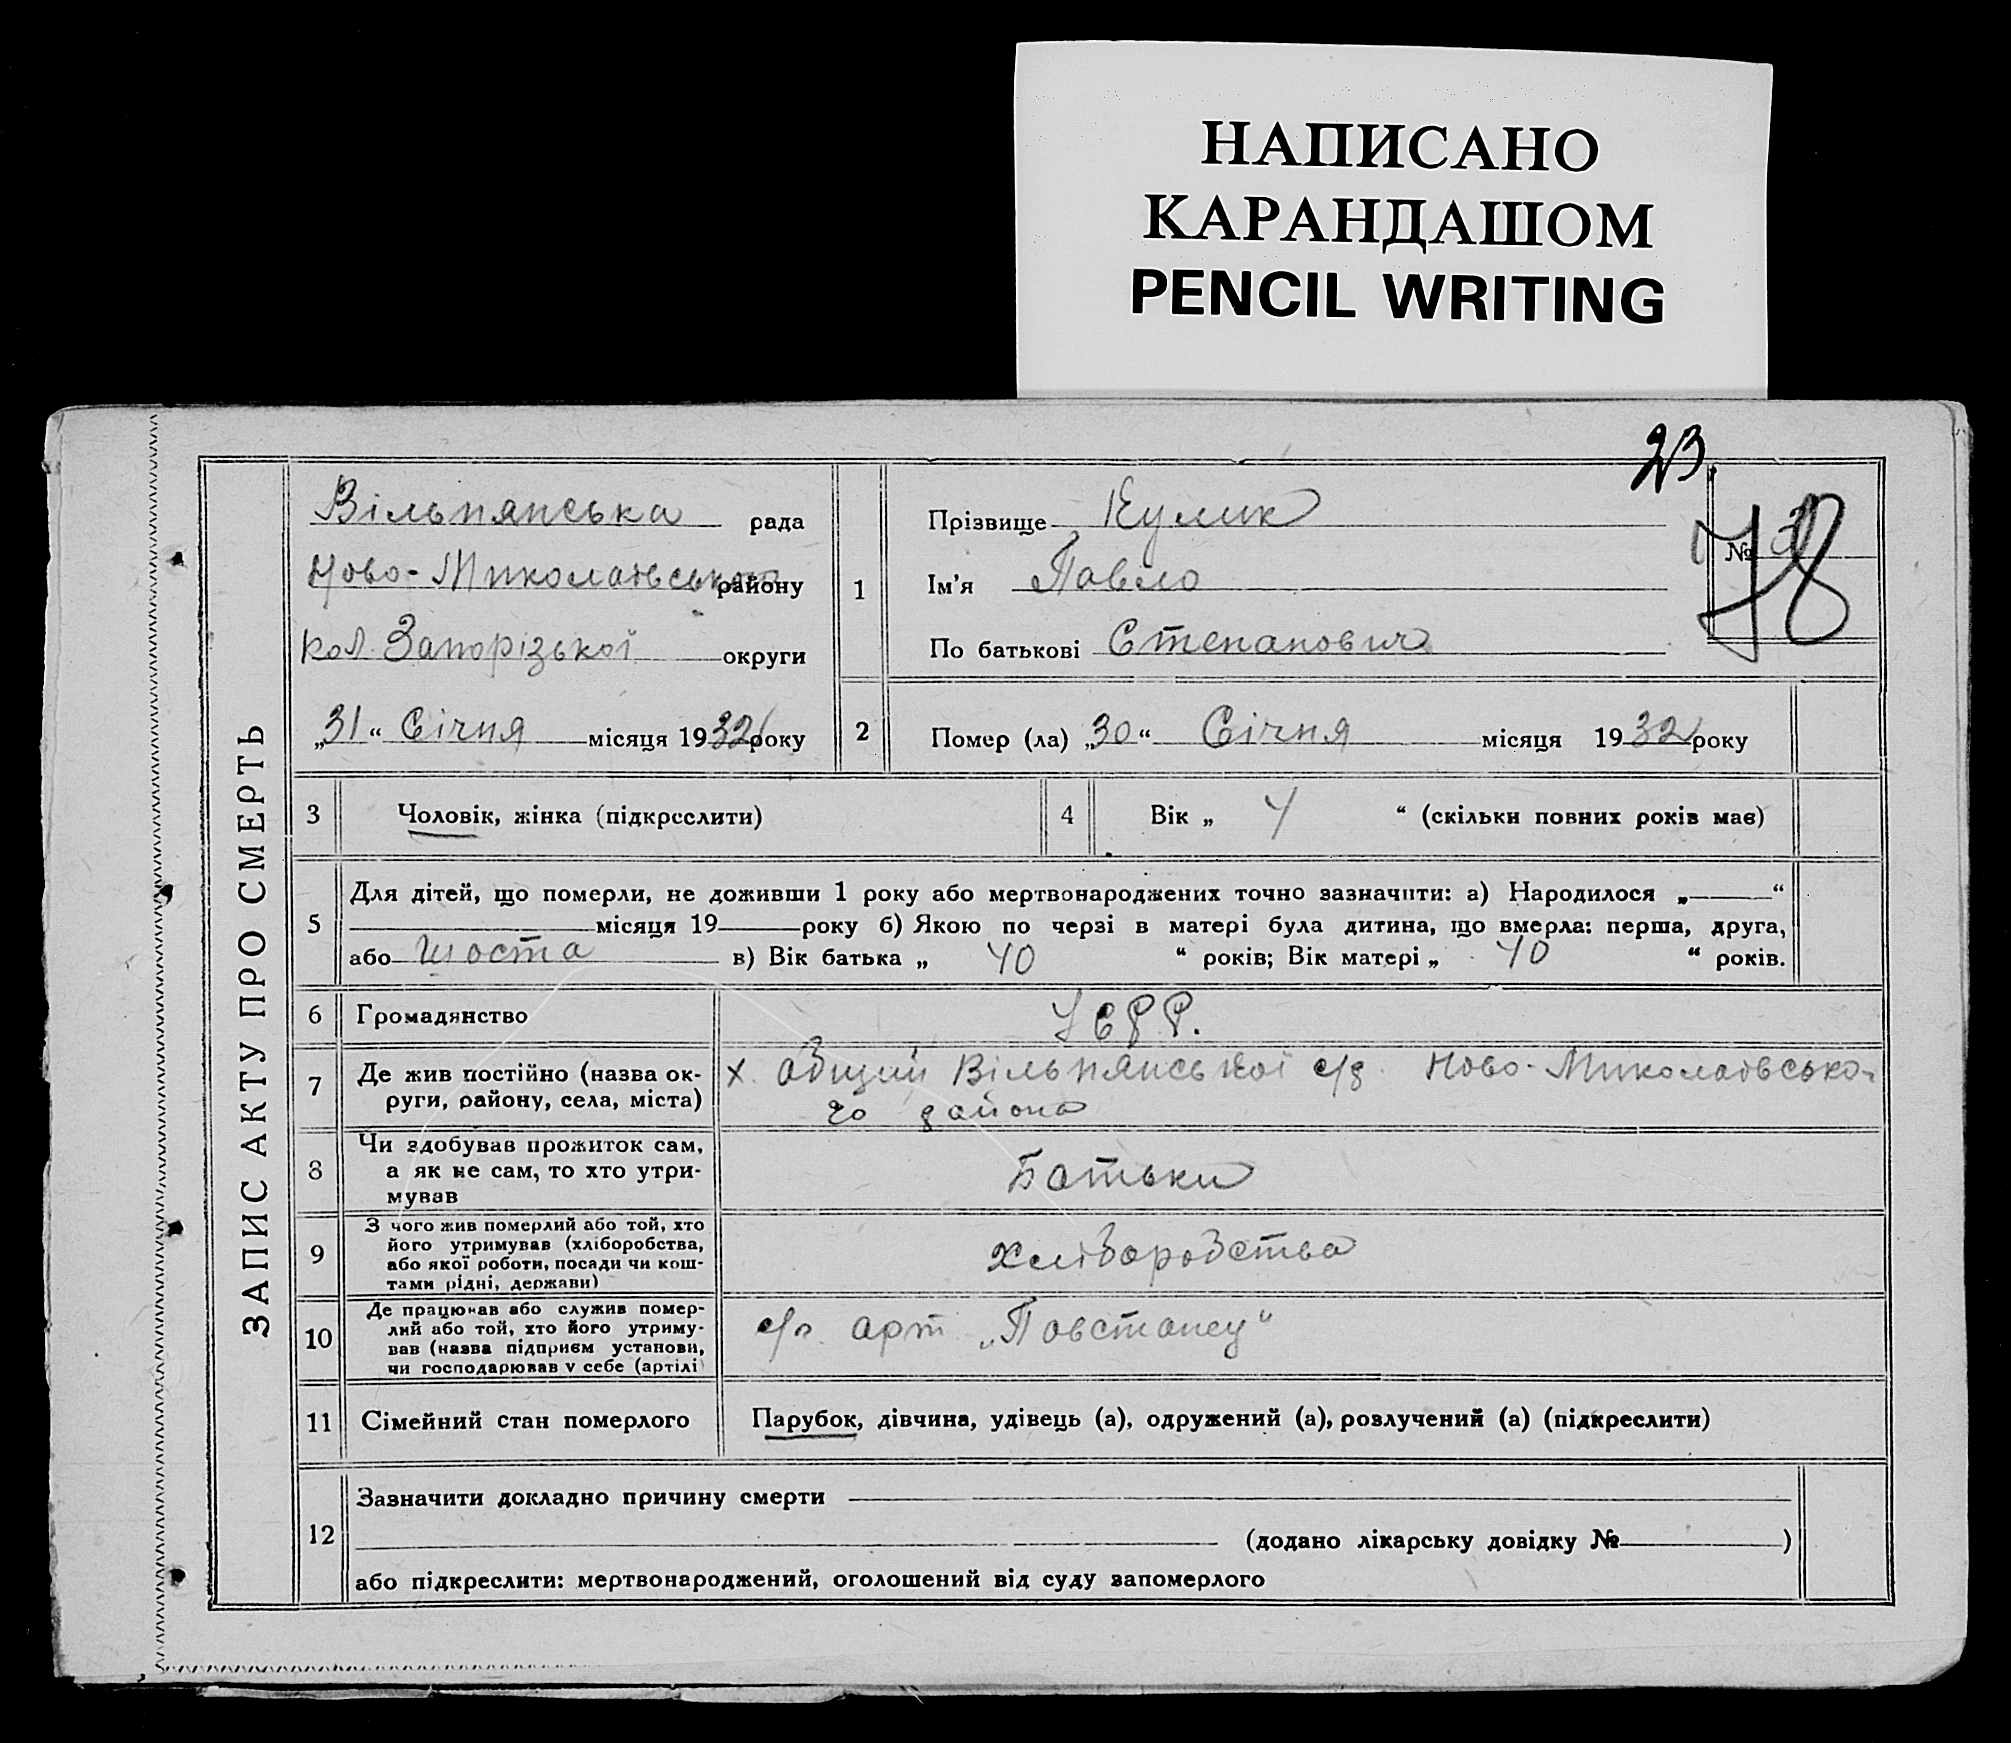 НАПИСАНО
КАРАНДАШОМ
PENCIL WRITING
23
ЗАПИС АКТУ ПРО СМЕРТЬ
Вільнянська рада
Ново-Миколаївського району
кол. Запорізької округи
„31“ Січня місяця 1932 року
1
Прізвище Кулик
Ім'я Павло
По батькові Степанович
№ 3
78
2 Помер (ла) „30“ Січня місяця 1932 року
3 Чоловік, жінка (підкреслити)
4 Вік „ 4 “ (скільки повних років має)
5
Для дітей, що померли, не доживши 1 року або мертвонароджених точно зазначити: а) Народилося „ “
місяця 19 року б) Якою по черзі в матері була дитина, що вмерла: перша, друга,
або шоста в) Вік батька „ 40 “ років; Вік матері „ 40 “ років.
6 Громадянство УСРР.
7
Де жив постійно (назва ок-
руги, району, села, міста)
х. Общий Вільнянської с/р. Ново-Миколаївсько-
го района
8
Чи здобував прожиток сам,
а як не сам, то хто утри-
мував
Батьки
9
З чого жив померлий або той, хто
його утримував (хліборобства,
або якої роботи, посади чи кош-
тами рідні, держави)
Хліборобства
10
Де працював або служив помер-
лий або той, хто його утриму-
вав (назва підприєм установи,
чи господарював у себе (артілі)
с/г. арт „Повстанец“
11 Сімейний стан померлого
Парубок, дівчина, удівець (а), одружений (а), розлучений (а) (підкреслити)
12
Зазначити докладно причину смерти
(додано лікарську довідку № )
або підкреслити: мертвонароджений, оголошений від суду запомерлого